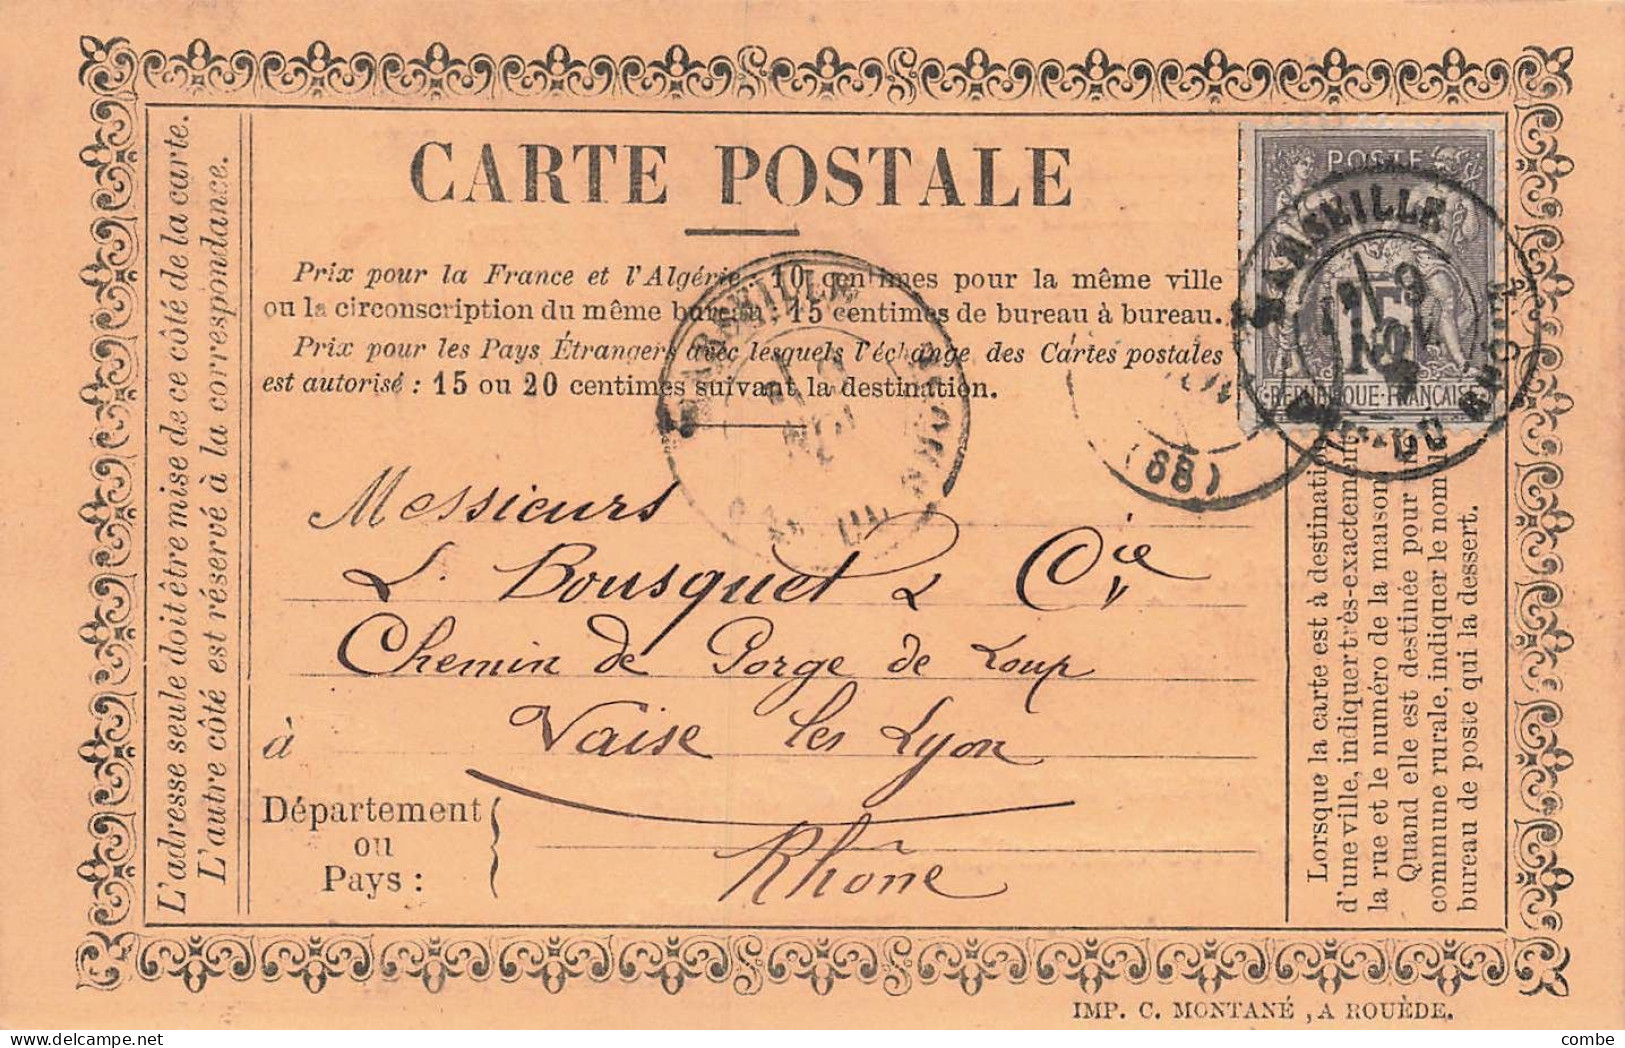 CARTE POSTALE
Prix pour la France et l'Algérie : 10 centimes pour la même ville
ou la circonscription du même bureau : 15 centimes de bureau à bureau.
Prix pour les Pays Étrangers avec lesquels l'échange des Cartes postales
est autorisé : 15 ou 20 centimes suivant la destination.
L'adresse seule doit être mise de ce côté de la carte.
L'autre côté est réservé à la correspondance.
POSTE
15
REPUBLIQUE FRANCAISE
MARSEILLE
9
NOV
MARSEILLE
(68)
Messieurs
L. Bousquet & Cie
Chemin de Gorge de Loup
à Vaise les Lyon
Département
ou
Pays :
Rhône
Lorsque la carte est à destination
d'une ville, indiquer très-exactement
la rue et le numéro de la maison
Quand elle est destinée pour
commune rurale, indiquer le nom
bureau de poste qui la dessert.
IMP. C. MONTANÉ, A ROUÈDE.
delcampe.net
combe